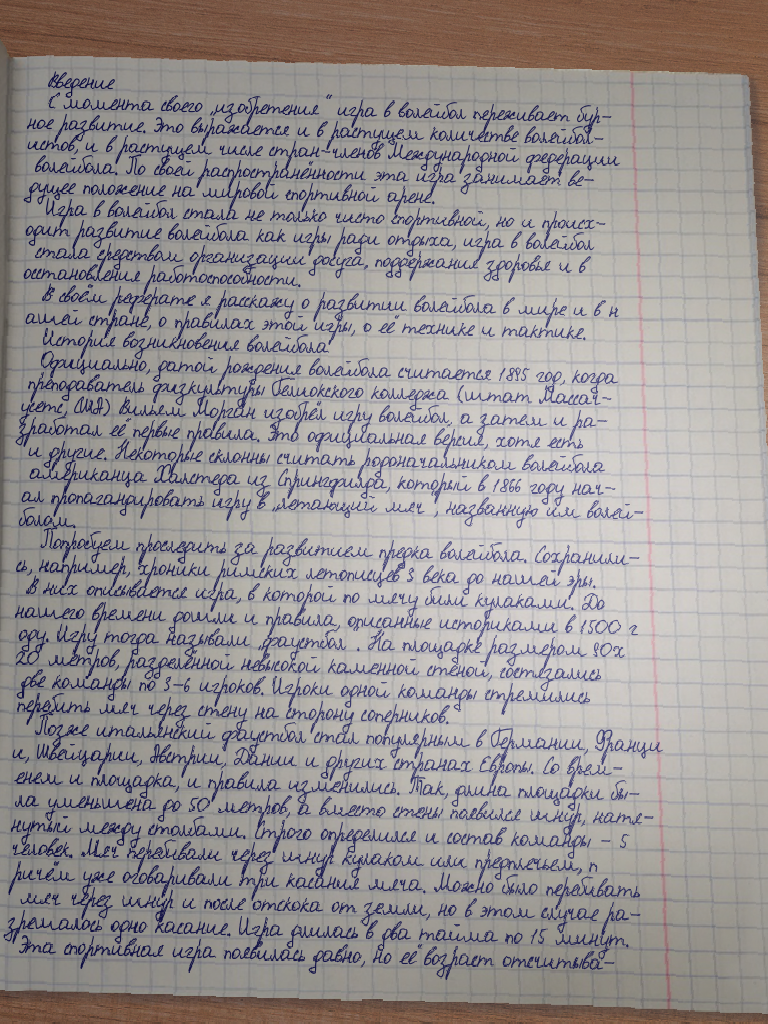 Введение
С момента своего „изобретения“ игра в волейбол переживает бур-
ное развитие. Это выражается и в растущем количестве волейбол-
истов, и в растущем числе стран-членов Международной федерации
волейбола. По своей распространённости эта игра занимает ве-
дущее положение на мировой спортивной арене.
Игра в волейбол стала не только чисто спортивной, но и происх-
одит развитие волейбола как игры ради отдыха, игра в волейбол
стала средством организации досуга, поддержания здоровья и в
осстановления работоспособности.
В своём реферате я расскажу о развитии волейбола в мире и в н
ашей стране, о правилах этой игры, о её технике и тактике.
История возникновения волейбола
Официально, датой рождения волейбола считается 1895 год, когда
преподаватель физкультуры Гелиокского колледжа (штат Массач-
усетс, США) Вильям Морган изобрёл игру волейбол, а затем и ра-
зработал её первые правила. Это официальная версия, хотя есть
и другие. Некоторые склонны считать родоначальником волейбола
американца Халстеда из Спрингфилда, который в 1866 году нач-
ал пропагандировать игру в „летающий мяч“, названную им волей-
болом.
Попробуем проследить за развитием предка волейбола. Сохранили-
сь, например, хроники римских летописцев 3 века до нашей эры.
В них описывается игра, в которой по мячу били кулаками. До
нашего времени дошли и правила, описанные историками в 1500 г
оду. Игру тогда называли „фаустбол“. На площадке размером 90х
20 метров, разделённой невысокой каменной стеной, состязались
две команды по 3-6 игроков. Игроки одной команды стремились
перебить мяч через стену на сторону соперников.
Позже итальянский фаустбол стал популярным в Германии, Франци
и, Швейцарии, Австрии, Дании и других странах Европы. Со врем-
енем и площадка, и правила изменились. Так, длина площадки бы-
ла уменьшена до 50 метров, а вместо стены появился шнур, натя-
нутый между столбами. Строго определился и состав команды – 5
человек. Мяч перебивали через шнур кулаком или предплечьем, п
ричём уже оговаривали три касания мяча. Можно было перебивать
мяч через шнур и после отскока от земли, но в этом случае ра-
зрешалось одно касание. Игра длилась в два тайма по 15 минут.
Эта спортивная игра появилась давно, но её возраст отсчитыва-